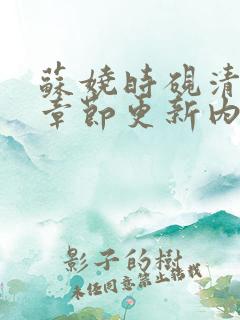 蘇嬈時硯清
章節更新內
影子的樹
未經同意禁止轉載